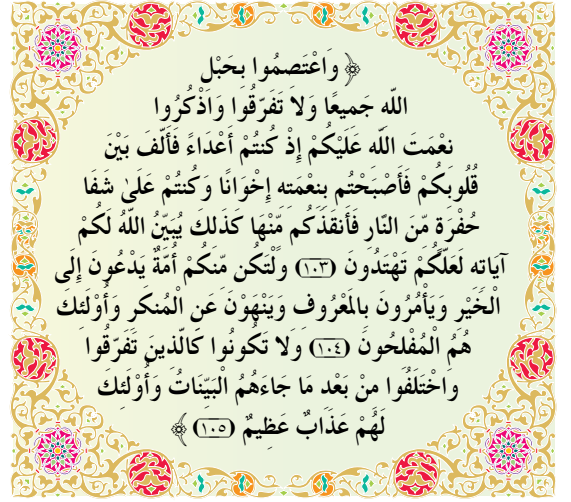 ﴿ وَاعْتَصِمُوا بِحَبْلِ
اللّه جَمِيعًا وَلاَ تَفَرَّقُوا وَاذْكُرُوا
نِعْمَتَ اللّه عَلَيْكُمْ إِذْ كُنتُمْ أَعْدَاءً فَأَلَّفَ بَيْنَ
قُلُوبِكُمْ فَأَصْبَحْتُم بِنِعْمَتِهِ إِخْوَانًا وَكُنتُمْ عَلَىٰ شَفَا
حُفْرَةٍ مِّنَ النّارِ فَأَنقَذَكُم مِّنْهَا كَذَلِكَ يُبَيِّنُ اللّهُ لَكُمْ
آيَاتِهِ لَعَلَّكُمْ تَهْتَدُونَ (١٠٣) وَلْتَكُن مِّنكُمْ أُمَّةٌ يَدْعُونَ إِلَى
الْخَيْرِ وَيَأْمُرُونَ بِالمَعْرُوفِ وَيَنْهَوْنَ عَنِ الْمُنكَرِ وَأُوْلَئِكَ
هُمُ الْمُفْلِحُونَ (١٠٤) وَلا تَكُونُوا كَالّذِينَ تَفَرَّقُوا
وَاخْتَلَفُوا مِنْ بَعْدِ مَا جَاءَهُمُ الْبَيِّنَاتُ وَأُوْلَئِكَ
لَهُمْ عَذَابٌ عَظِيمٌ (١٠٥) ﴾